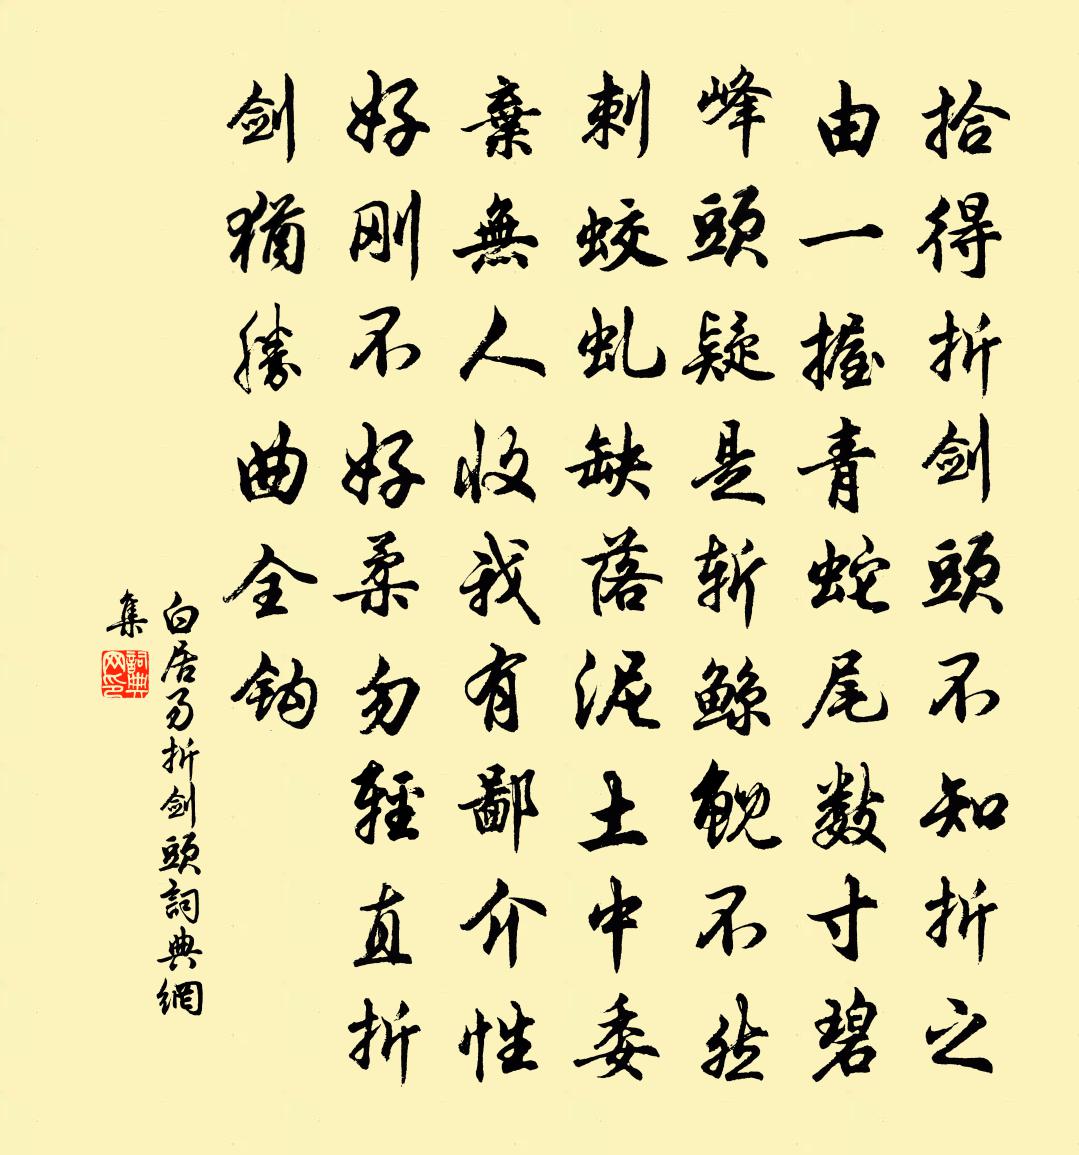 拾得折剑頭不知折之
由一握青蛇尾数寸碧
峰頭疑是斬鲸鲵不然
刺蛟虬缺落泥土中委
棄無人收我有鄙介性
好刚不好柔勿輕直折
剑猶勝曲全钩
白居易折剑頭詞典網
集
詞典网印